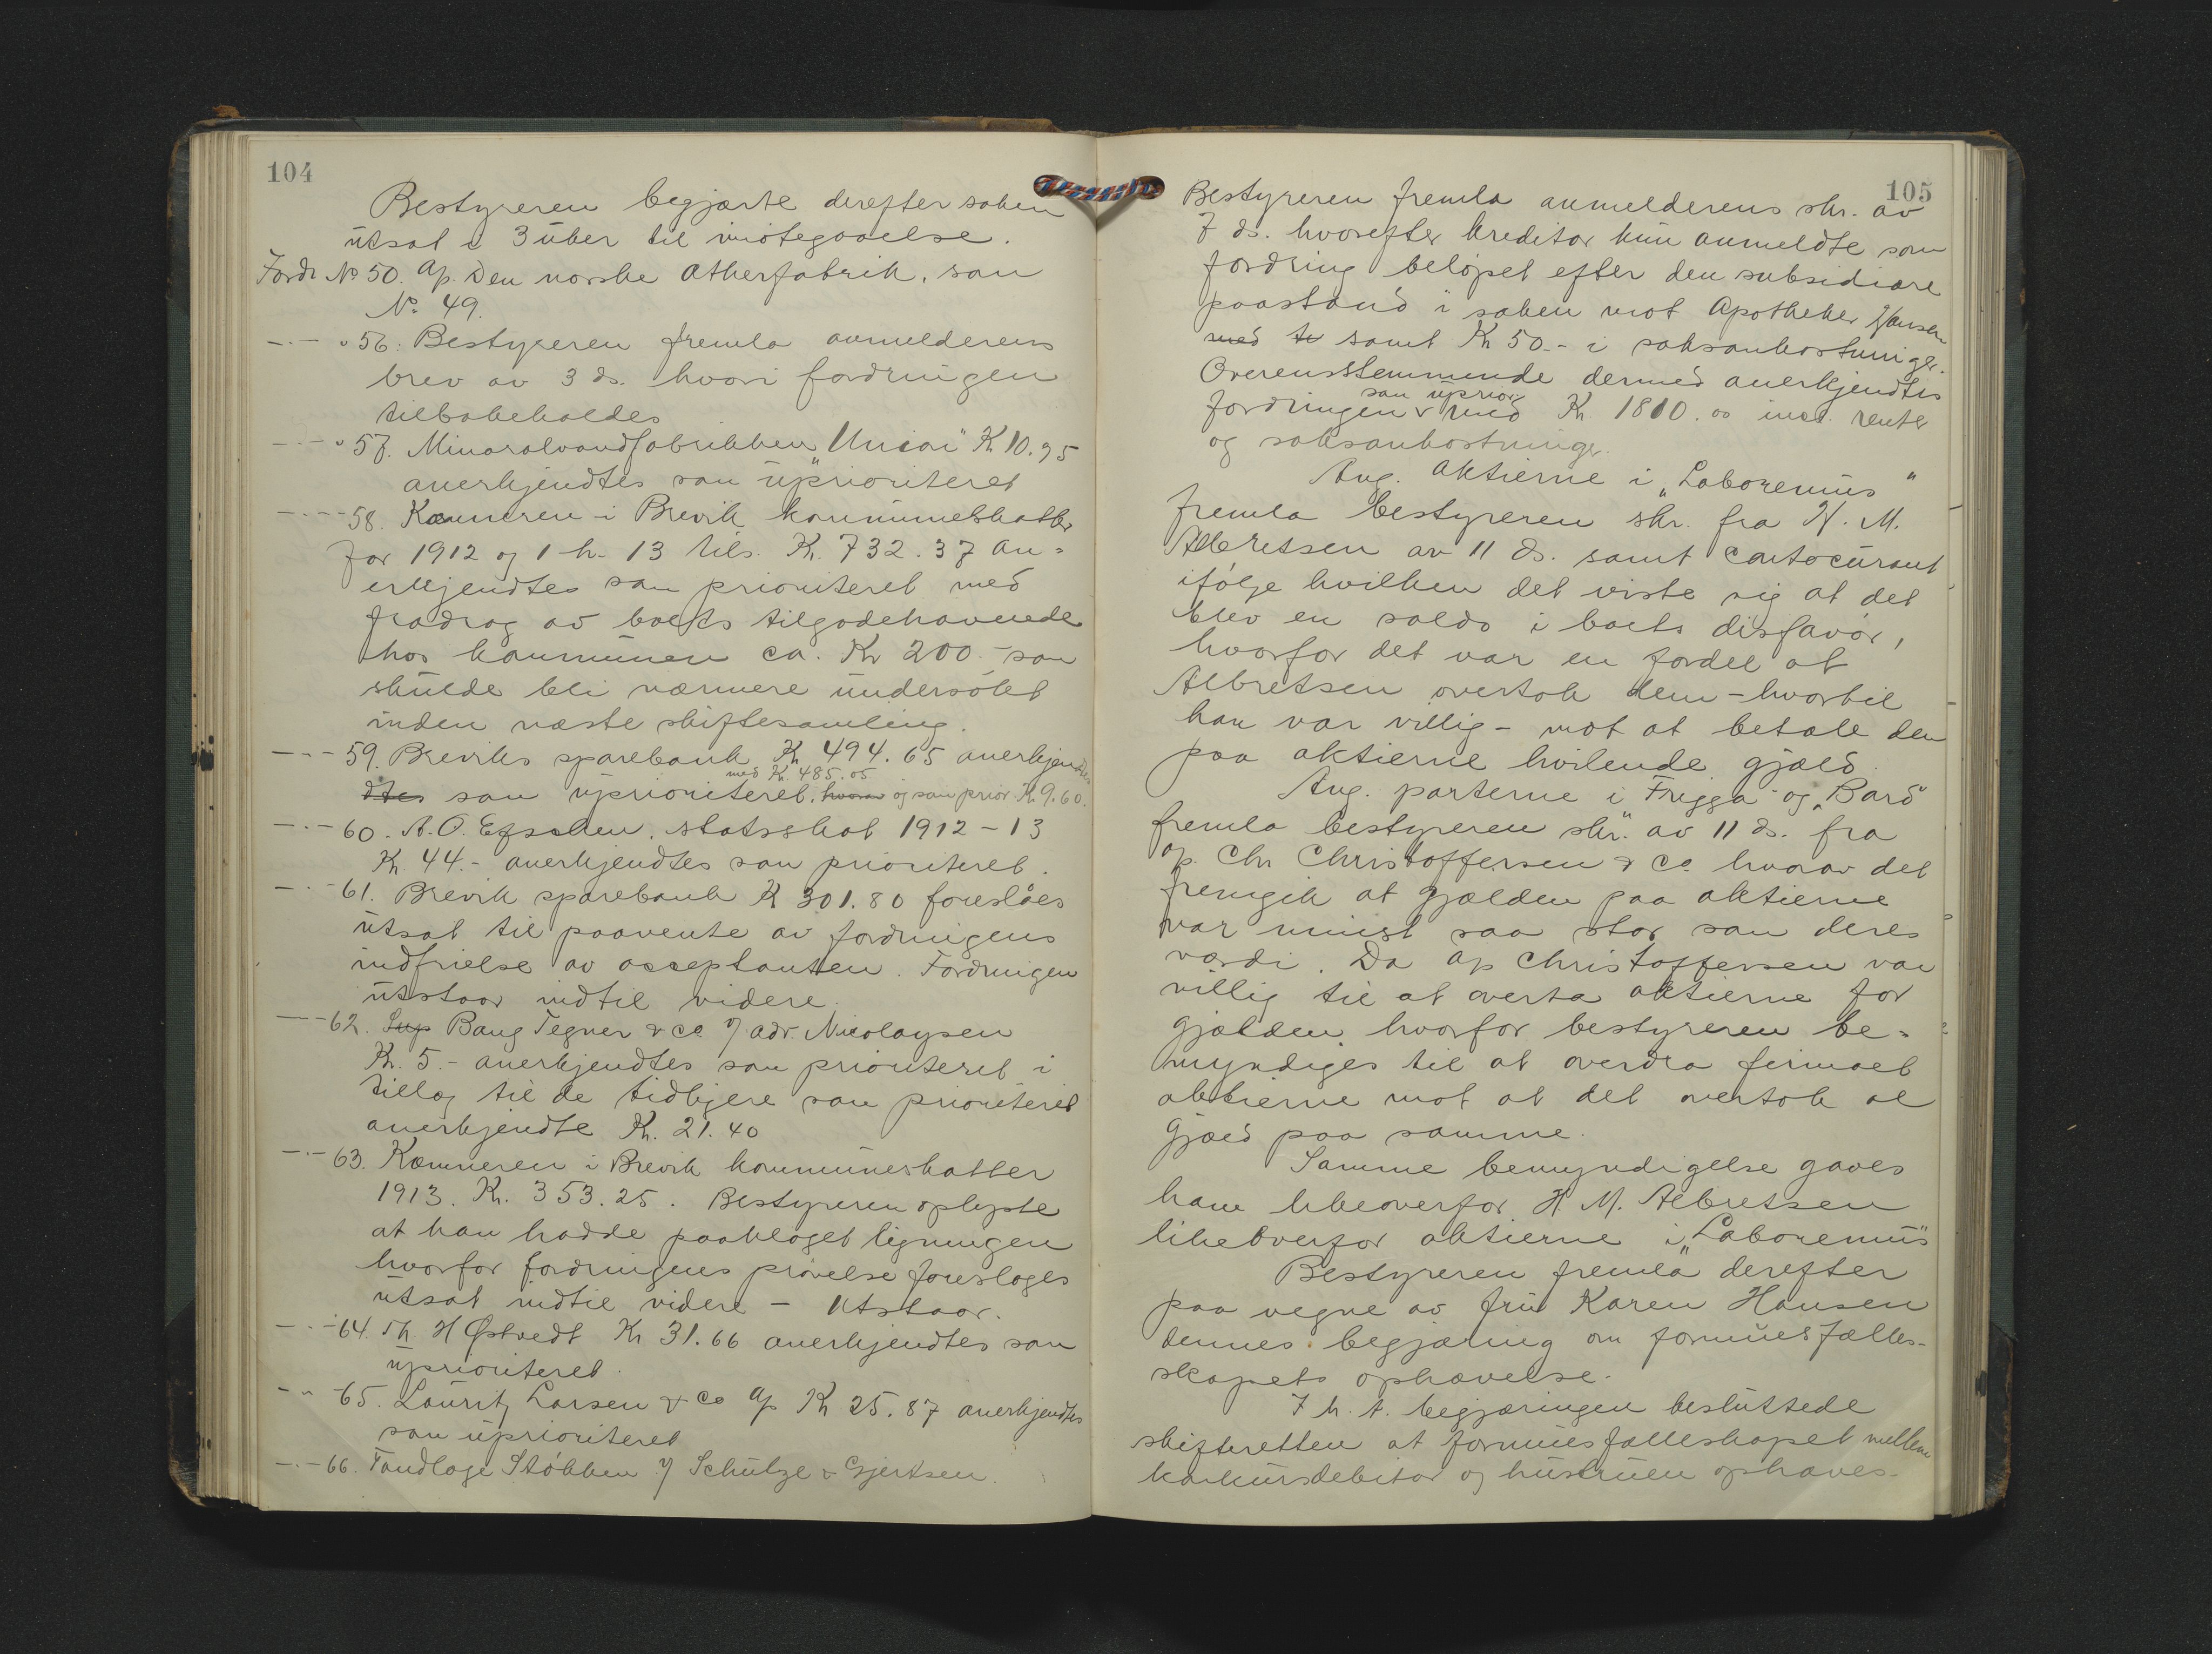 104
Bestyreren begjærte derefter saken
utsat i 3 uker til imøtegaaelse.
Fordr No 50. A/s Den norske Ætherfabrik, som
No 49.
— " 56. Bestyreren fremla anmelderens
brev av 3 ds. hvori fordringen
tilbakeholdes
— " 57. Mineralvandfabrikken "Union" Kr 10.95
anerkjendtes som uprioriteret
— 58. Kæmneren i Brevik kommuneskatter
for 1912 og 1 h. 13 tils. Kr. 732.37 an=
erkjendtes som prioriteret med
fradrag av boets tilgodehavende
hos kommunen ca. Kr 200.- som
skulde bli nærmere undersøkt
inden næste skiftesamling.
— 59. Breviks sparebank Kr 494.65 anerkjendtes
med Kr. 485.05
dtes som uprioriteret, hvorav og som prior. Kr. 9.60.
— 60. A.O. statsskat 1912-13
Kr. 44.- anerkjendtes som prioriteret.
— 61. Brevik sparebank Kr 301.80 foreslåes
utsat til paavente av fordringens
indfrielse av acceptanten. Fordringen
utstaar indtil videre.
— 62. Bang Tegner & Co. v/ adv. Nicolaysen
Kr. 5.- anerkjendtes som prioriteret i
tillæg til de tidligere som prioriteret
anerkjendte Kr. 21.40
— 63. Kæmneren i Brevik kommuneskatter
1913. Kr. 353.25. Bestyreren oplyste
at han hadde paaklaget ligningen
hvorfor fordringens prøvelse foresloges
utsat indtil videre - Utstaar.
— 64. Th. H Østvedt Kr 31.66 anerkjendtes som
uprioriteret.
— 65. Lauritz Larsen & Co A/s Kr 25.87 anerkjendtes
som uprioriteret
— 66. Tandlæge Støkken v/ Schulze & Gjertsen.
105
Bestyreren fremla anmelderens skr. av
7 ds. hvorefter kreditor kun anmeldte som
fordring beløpet efter den subsidiære
paastand i saken mot Apotheker Hansen
med samt Kr 50.- i saksomkostninger.
Overensstemmende dermed anerkjendtes
som uprior.
fordringen med Kr. 1810.00 incl. renter
og saksomkostninger.
Ang. aktierne i "Laboremus"
fremla bestyreren skr. fra H. M.
Albretsen av 11 ds. samt contocurant
ifølge hvilken det viste sig at det
blev en saldo i boets disfavør,
hvorfor det var en fordel at
Albretsen overtok dem - hvortil
han var villig - mot at betale den
paa aktierne hvilende gjæld.
Ang. parterne i "Frigga" og "Bard"
fremla bestyreren skr. av 11 ds. fra
A/s. Chr Christoffersen & Co. hvorav det
fremgik at gjælden paa aktierne
var minst saa stor som deres
værdi. Da A/s Christoffersen var
villig til at overta aktierne for
gjælden, hvorfor bestyreren be=
myndiges til at overdra firmaet
aktierne mot at det overtok al
gjæld paa samme.
Samme bemyndigelse gaves
ham likeoverfor H. M. Albretsen
likeoverfor aktierne i "Laboremus"
Bestyreren fremla derefter
paa vegne av fru Karen Hansen
dennes begjæring om formuesfælles-
skapets ophævelse.
I h. t. begjæringen besluttede
skifteretten at formuesfælleskapet mellem
konkursdebitor og hustruen ophæves.